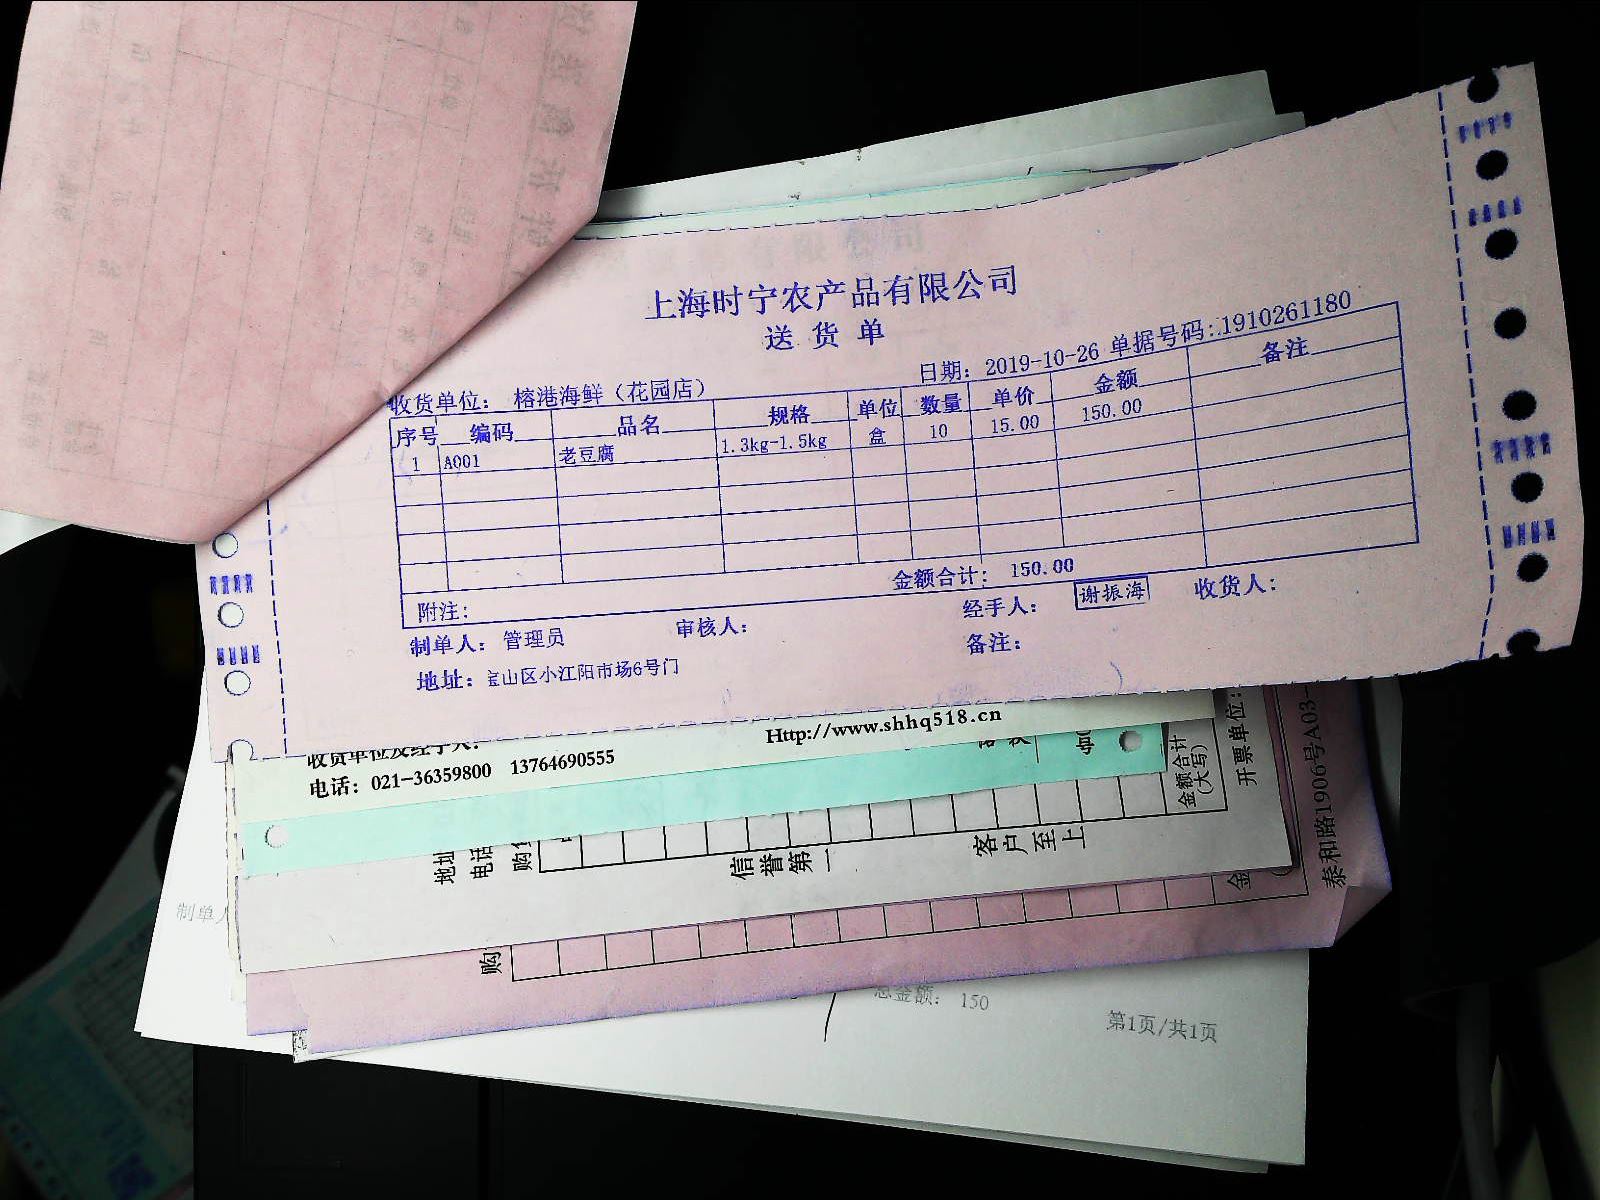 上海时宁农产品有限公司
送货单
日期：2019-10-26 单据号码：1910261180
收货单位：榕港海鲜（花园店）
序号 编码 品名 规格 单位 数量 单价 金额 备注
1 A001 老豆腐 1.3kg-1.5kg 盒 10 15.00 150.00
金额合计：150.00
附注：
制单人：管理员 审核人： 经手人：谢振海 收货人：
地址：宝山区小江阳市场6号门 备注：
收货单位及经手人：
Http://www.shhq518.cn
电话：021-36359800 13764690555
金额合计
(大写)
开票单位：
泰和路1906号A03-
地址
电话
购货
信誉第一
客户至上
购
金
制单人
总金额：150
第1页/共1页